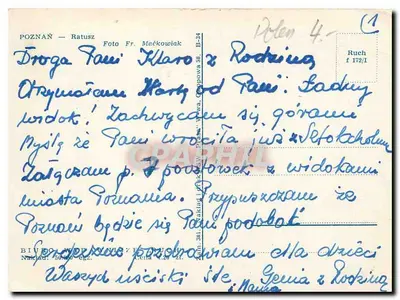 POZNAŃ - Ratusz
Foto Fr. Maćkowiak
Polen 4.-
1
Ruch
f 172/I
Droga Pani Klaro z Rodziną
Otrzymałam Kartę od Pani. Ładny
widok! Zachwycam się górami
Myślę że Pani wróciła już z
Załączam p. 7 pocztówek z widokami
miasta Poznania. Przypuszczam że
Poznań będzie się Pani podobał
Serdecznie pozdrawiam dla dzieci
uściski śle Genia z Rodziną
i Mama
CPARAMA